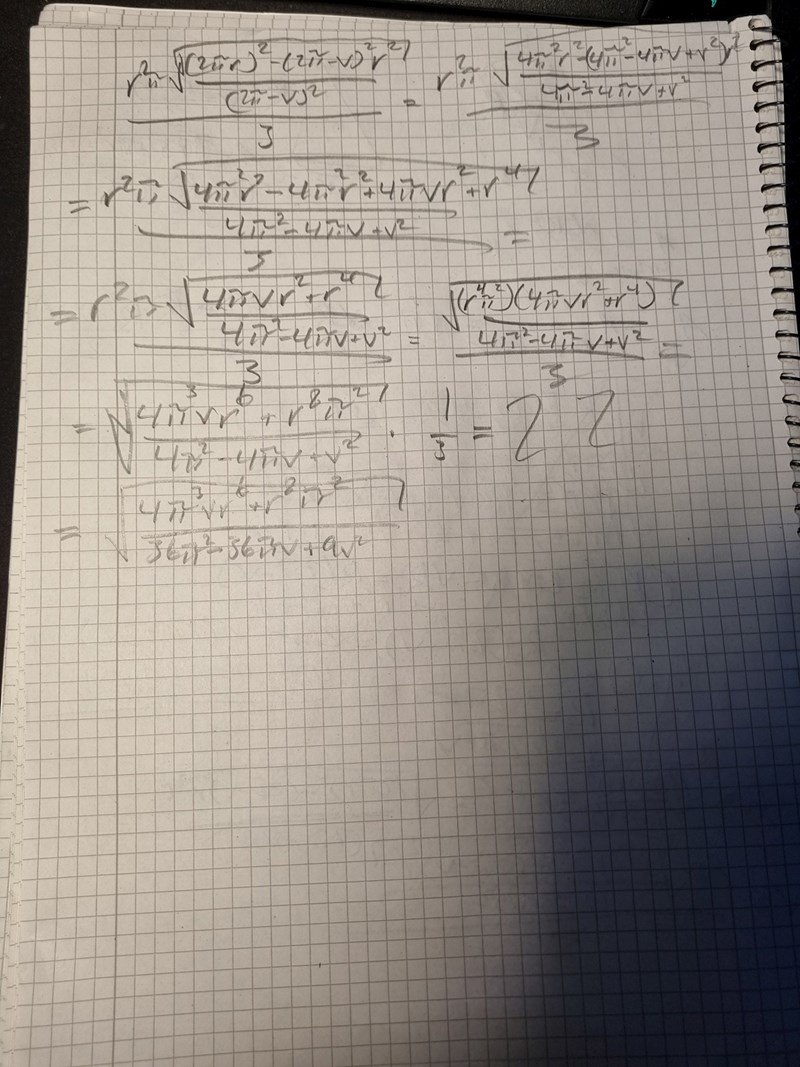 (r²π√(((2πr)²-(2π-v)²r²)/((2π-v)²)))/3 = (r²π√((4π²r²-(4π²-4πv+v²)r²)/(4π²-4πv+v²)))/3
= (r²π√((4π²r²-4π²r²+4πvr²+r⁴)/(4π²-4πv+v²)))/3 =
= (r²π√((4πvr²+r⁴)/(4π²-4πv+v²)))/3 = (√(((r⁴π²)(4πvr²+r⁴))/(4π²-4πv+v²)))/3 =
= √((4π³vr⁶+r⁸π²)/(4π²-4πv+v²)) · 1/3 =
= √((4π³vr⁶+r⁸π²)/(36π²-36πv+9v²))